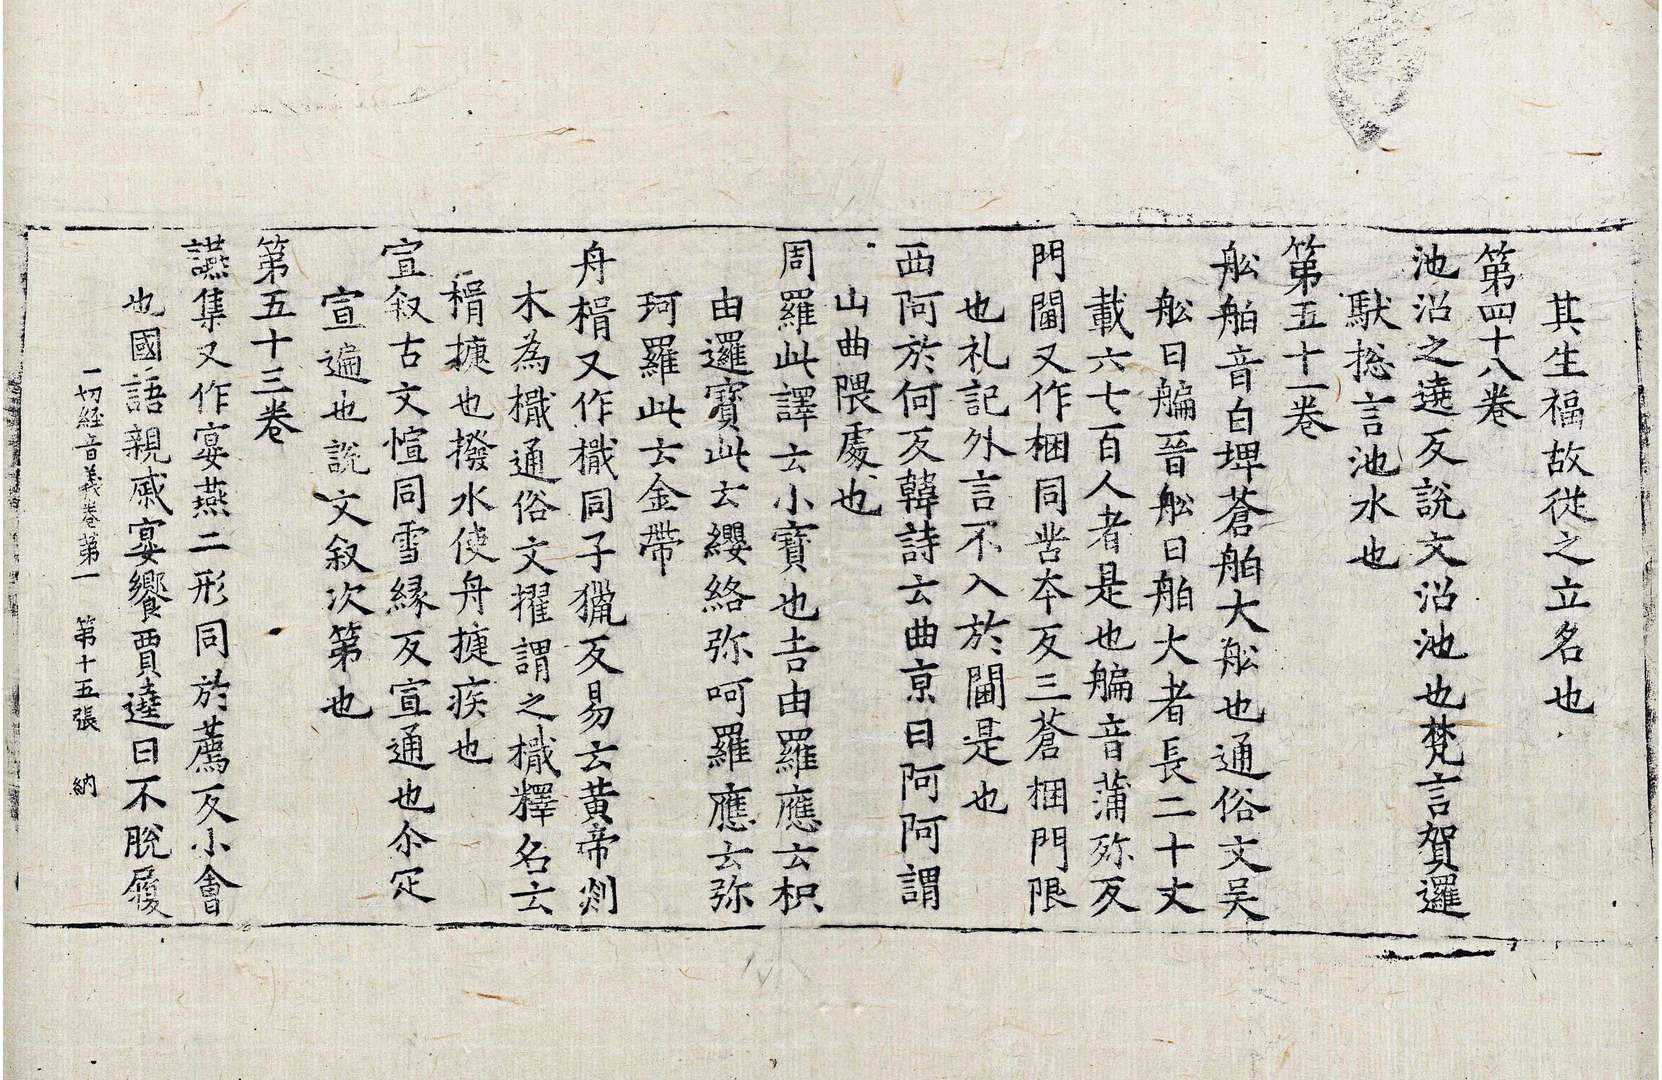 其生福故從之立名也
第四十八卷
池沼之遶反說文沼池也梵言賀邏
馱揔言池水也
第五十一卷
舩舶音白埤蒼舶大舩也通俗文吴
舩曰艑晉舩曰舶大者長二十丈
載六七百人者是也艑音蒲殄反
門閫又作梱同苦夲反三蒼梱門限
也礼記外言不入於閫是也
西阿於何反韓詩云曲京曰阿阿謂
山曲隈處也
周羅此譯云小寶也吉由羅應云枳
由邏寶此云纓絡弥呵羅應云弥
珂羅此云金帶
舟楫又作檝同子獵反易云黄帝剡
木為檝通俗文擢謂之檝釋名云
楫揵也撥水使舟揵疾也
宣叙古文愃同雪縁反宣通也尒疋
宣遍也說文叙次第也
第五十三卷
讌集又作宴燕二形同於薦反小會
也國語親戚宴饗賈逵曰不脫屨
一切經音義卷第一 第十五張 納